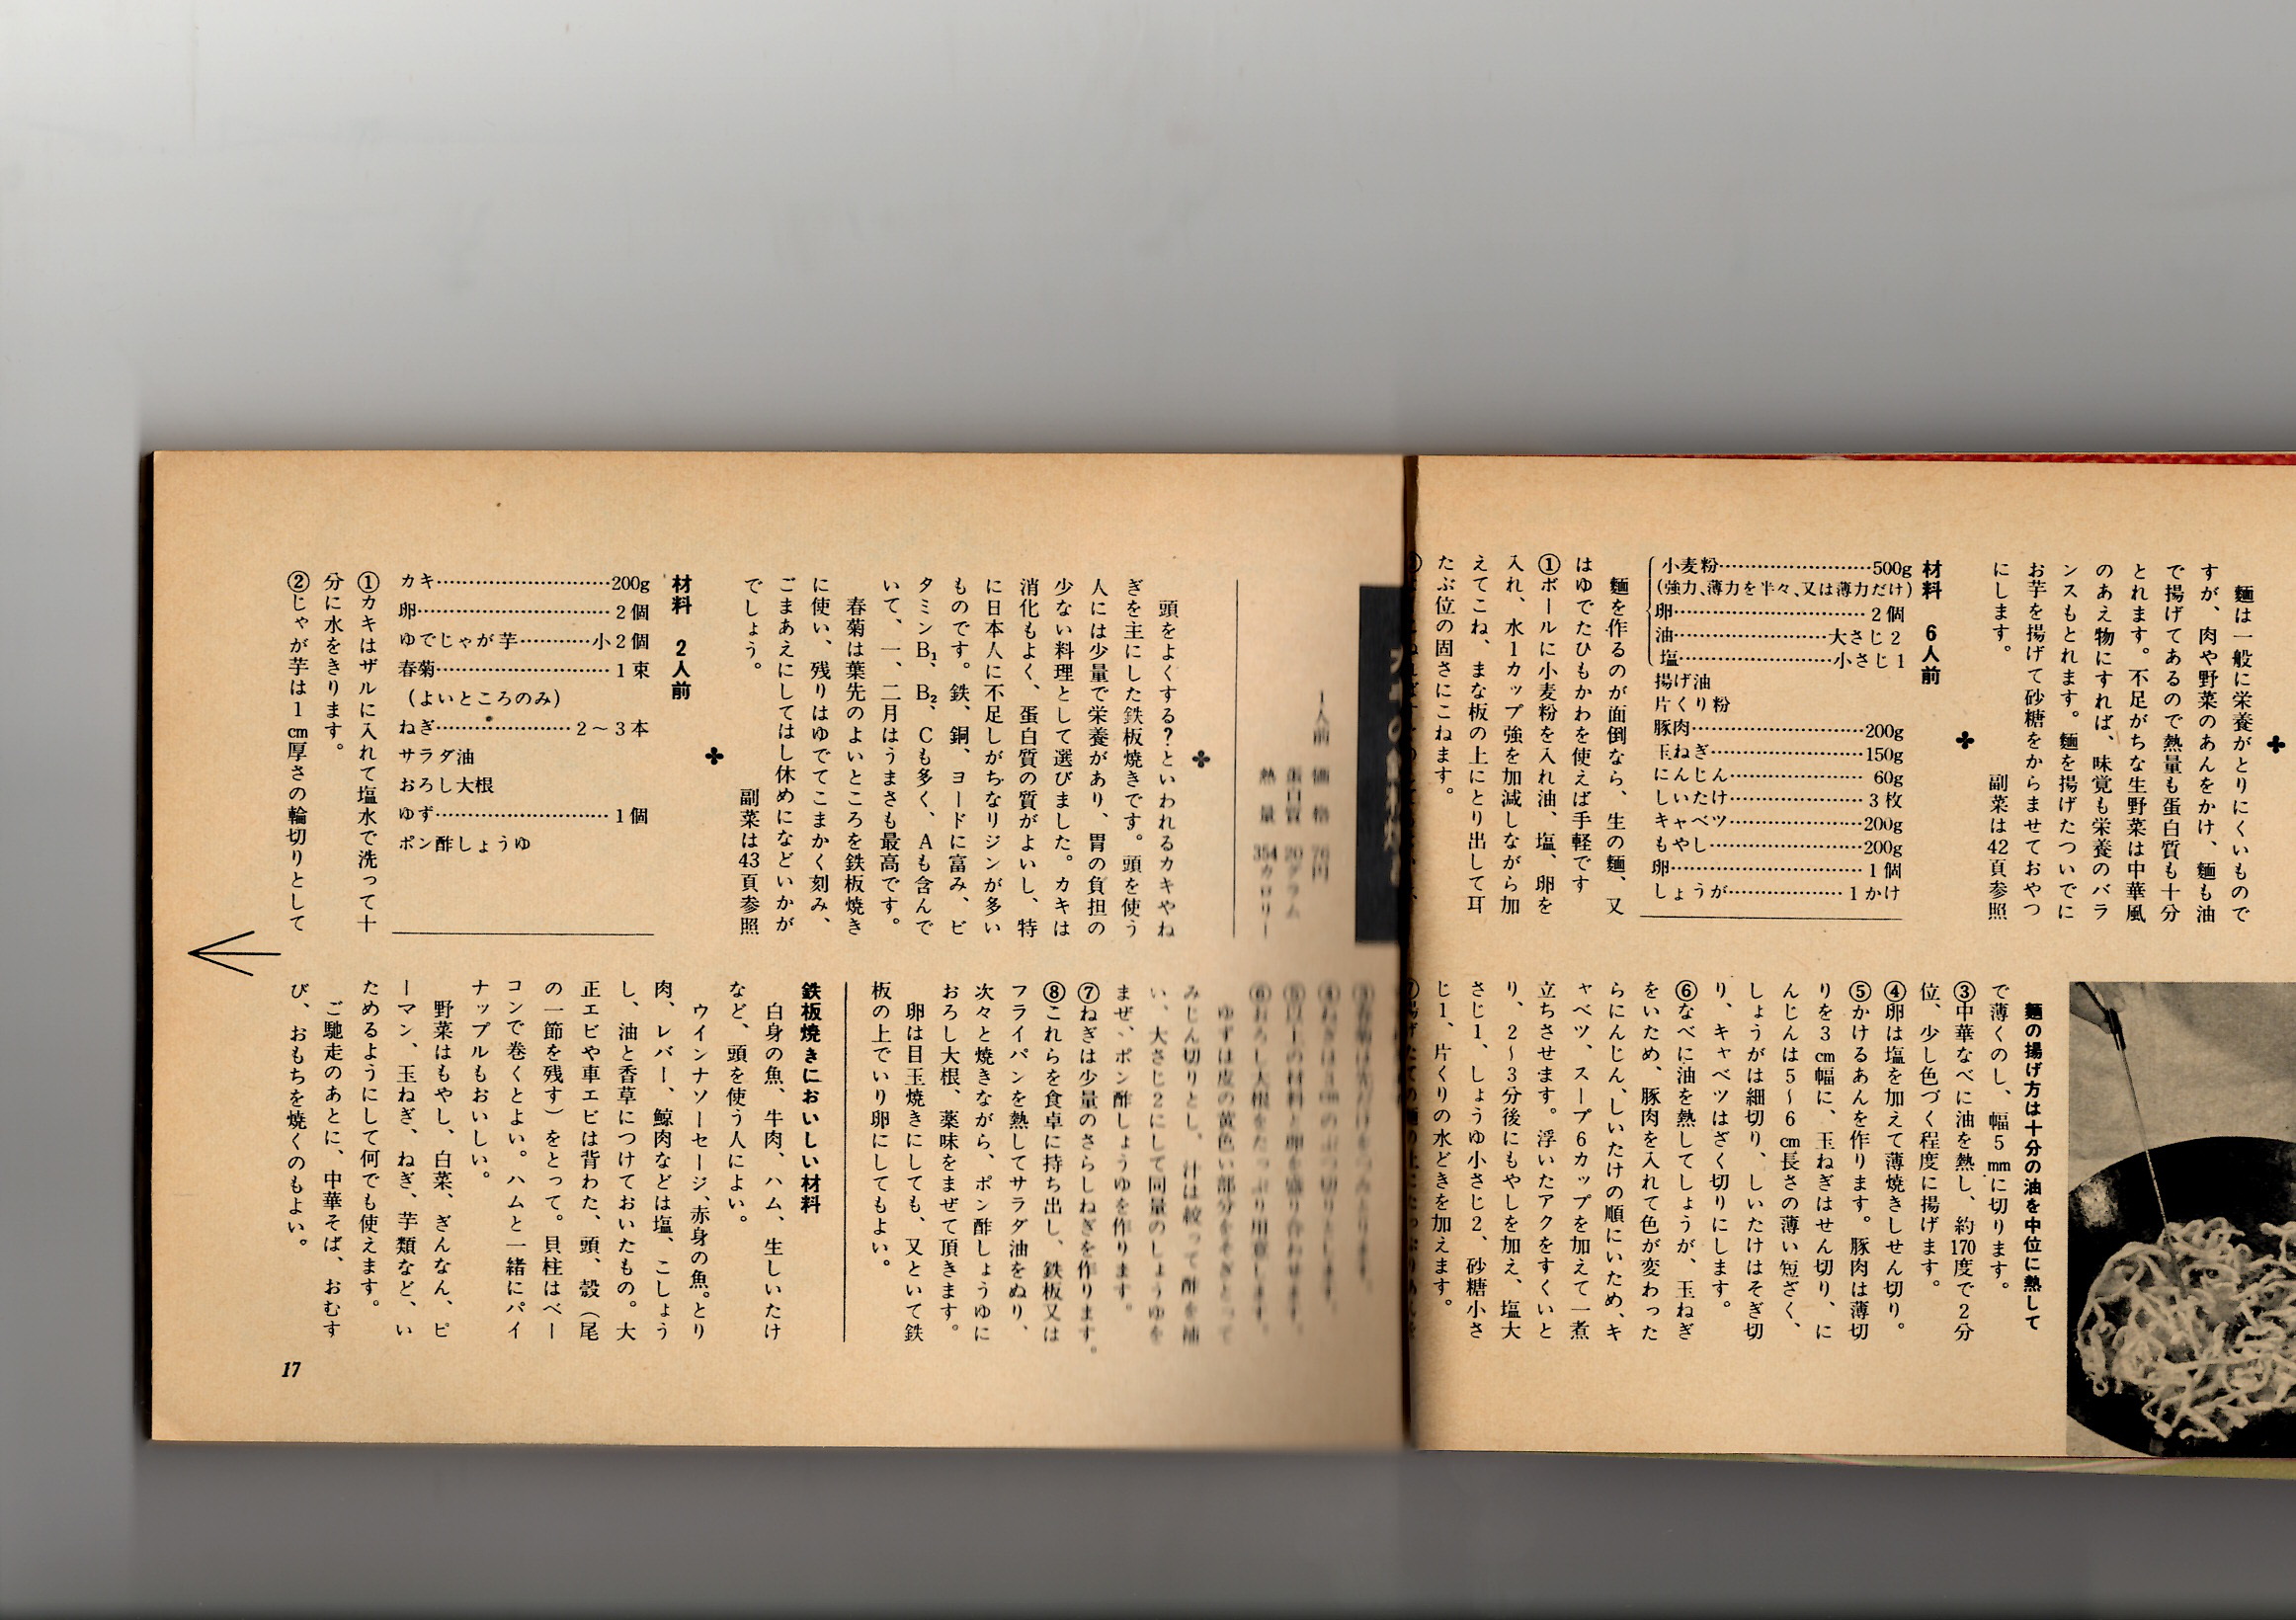 ✤
麺は一般に栄養がとりにくいもので
すが、肉や野菜のあんをかけ、麺も油
で揚げてあるので熱量も蛋白質も十分
とれます。不足がちな生野菜は中華風
のあえ物にすれば、味覚も栄養のバラ
ンスもとれます。麺を揚げたついでに
お芋を揚げて砂糖をからませておやつ
にします。
副菜は42頁参照
✤
材料 6人前
小麦粉…………500g
(強力、薄力を半々、又は薄力だけ)
卵…………2個
油…………大さじ2
塩…………小さじ1
揚げ油
片くり粉
豚肉…………200g
玉ねぎ…………150g
にんじん…………60g
しいたけ…………3枚
キャベツ…………200g
もやし…………200g
卵…………1個
しょうが…………1かけ
麺を作るのが面倒なら、生の麺、又
はゆでたひもかわを使えば手軽です
①ボールに小麦粉を入れ油、塩、卵を
入れ、水1カップ強を加減しながら加
えてこね、まな板の上にとり出して耳
たぶ位の固さにこねます。
麺の揚げ方は十分の油を中位に熱して
で薄くのし、幅5㎜に切ります。
③中華なべに油を熱し、約170度で2分
位、少し色づく程度に揚げます。
④卵は塩を加えて薄焼きしせん切り。
⑤かけるあんを作ります。豚肉は薄切
りを3㎝幅に、玉ねぎはせん切り、に
んじんは5~6㎝長さの薄い短ざく、
しょうがは細切り、しいたけはそぎ切
り、キャベツはざく切りにします。
⑥なべに油を熱してしょうが、玉ねぎ
をいため、豚肉を入れて色が変わった
らにんじん、しいたけの順にいため、キ
ャベツ、スープ6カップを加えて一煮
立ちさせます。浮いたアクをすくいと
り、2~3分後にもやしを加え、塩大
さじ1、しょうゆ小さじ2、砂糖小さ
じ1、片くりの水どきを加えます。
1人前 価格 76円
蛋白質 20グラム
熱量 354カロリー
✤
頭をよくする?といわれるカキやね
ぎを主にした鉄板焼きです。頭を使う
人には少量で栄養があり、胃の負担の
少ない料理として選びました。カキは
消化もよく、蛋白質の質がよいし、特
に日本人に不足しがちなリジンが多い
ものです。鉄、銅、ヨードに富み、ビ
タミンB₁、B₂、Cも多く、Aも含んで
いて、一、二月はうまさも最高です。
春菊は葉先のよいところを鉄板焼き
に使い、残りはゆでてこまかく刻み、
ごまあえにしてはし休めになどいかが
でしょう。
副菜は43頁参照
✤
材料 2人前
カキ…………200g
卵…………2個
ゆでじゃが芋…………小2個
春菊…………1束
(よいところのみ)
ねぎ…………2~3本
サラダ油
おろし大根
ゆず…………1個
ポン酢しょうゆ
①カキはザルに入れて塩水で洗って十
分に水をきります。
②じゃが芋は1㎝厚さの輪切りとして
⑤以上の材料と卵を盛り合わせます。
⑥おろし大根をたっぷり用意します。
ゆずは皮の黄色い部分をそぎとって
みじん切りとし、汁は絞って酢を補
い、大さじ2にして同量のしょうゆを
まぜ、ポン酢しょうゆを作ります。
⑦ねぎは少量のさらしねぎを作ります。
⑧これらを食卓に持ち出し、鉄板又は
フライパンを熱してサラダ油をぬり、
次々と焼きながら、ポン酢しょうゆに
おろし大根、薬味をまぜて頂きます。
卵は目玉焼きにしても、又といて鉄
板の上でいり卵にしてもよい。
鉄板焼きにおいしい材料
白身の魚、牛肉、ハム、生しいたけ
など、頭を使う人によい。
ウインナソーセージ、赤身の魚。とり
肉、レバー、鯨肉などは塩、こしょう
し、油と香草につけておいたもの。大
正エビや車エビは背わた、頭、殻(尾
の一節を残す)をとって。貝柱はベー
コンで巻くとよい。ハムと一緒にパイ
ナップルもおいしい。
野菜はもやし、白菜、ぎんなん、ピ
ーマン、玉ねぎ、ねぎ、芋類など、い
ためるようにして何でも使えます。
ご馳走のあとに、中華そば、おむす
び、おもちを焼くのもよい。
17